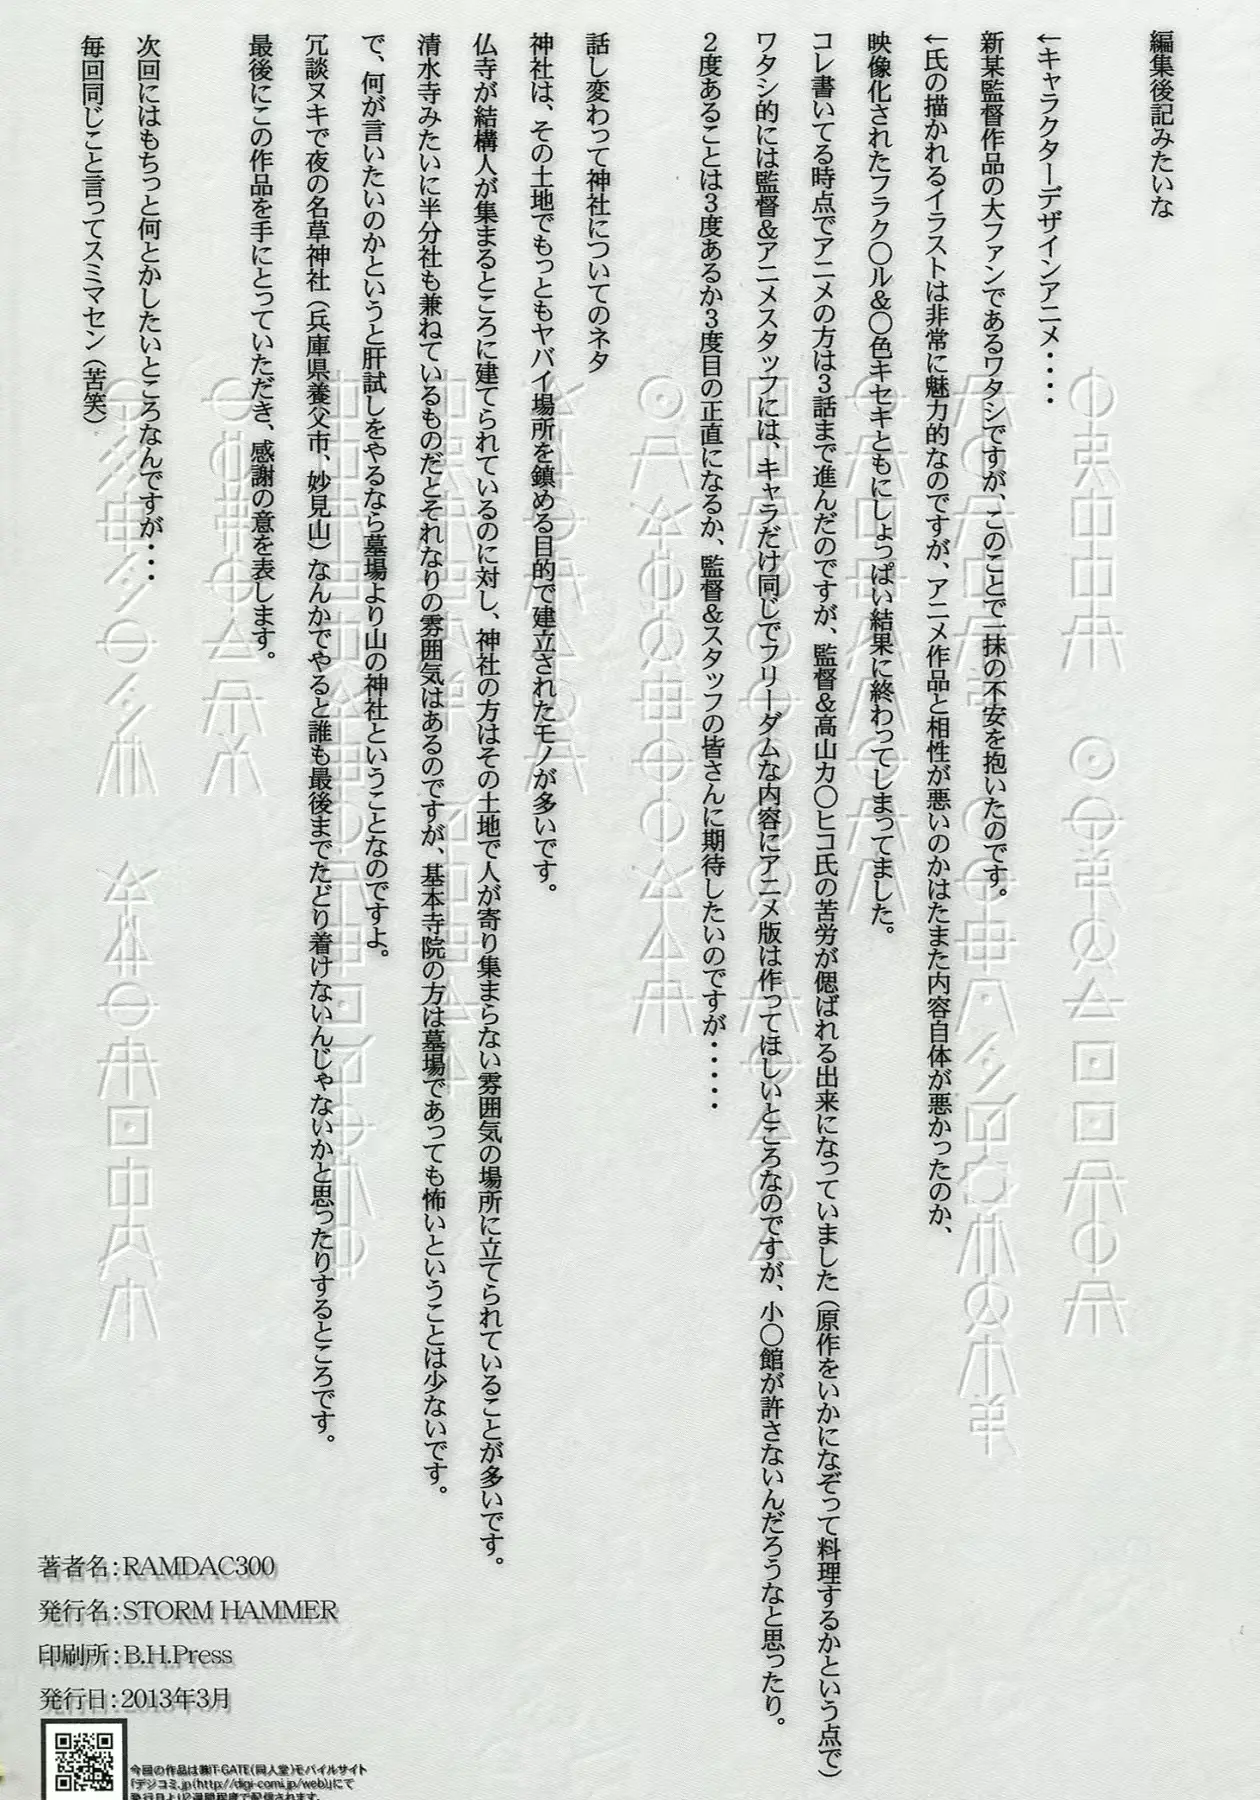 編集後記みたいな
←キャラクターデザインアニメ・・・・
新某監督作品の大ファンであるワタシですが、このことで一抹の不安を抱いたのです。
←氏の描かれるイラストは非常に魅力的なのですが、アニメ作品と相性が悪いのかはたまた内容自体が悪かったのか、
映像化されたフラク○ル&○色キセキともにしょっぱい結果に終わってしまってました。
コレ書いてる時点でアニメの方は3話まで進んだのですが、監督&高山カ○ヒコ氏の苦労が偲ばれる出来になっていました(原作をいかになぞって料理するかという点で)
ワタシ的には監督&アニメスタッフには、キャラだけ同じでフリーダムな内容にアニメ版は作ってほしいところなのですが、小○館が許さないんだろうなと思ったり。
2度あることは3度あるか3度目の正直になるか、監督&スタッフの皆さんに期待したいのですが・・・・・
話し変わって神社についてのネタ
神社は、その土地でもっともヤバイ場所を鎮める目的で建立されたモノが多いです。
仏寺が結構人が集まるところに建てられているのに対し、神社の方はその土地で人が寄り集まらない雰囲気の場所に立てられていることが多いです。
清水寺みたいに半分社も兼ねているものだとそれなりの雰囲気はあるのですが、基本寺院の方は墓場であっても怖いということは少ないです。
で、何が言いたいのかというと肝試しをやるなら墓場より山の神社ということなのですよ。
冗談ヌキで夜の名草神社(兵庫県養父市、妙見山)なんかでやると誰も最後までたどり着けないんじゃないかと思ったりするところです。
最後にこの作品を手にとっていただき、感謝の意を表します。
次回にはもちっと何とかしたいところなんですが・・・
毎回同じこと言ってスミマセン(苦笑)
著者名:RAMDAC300
発行名:STORM HAMMER
印刷所:B.H.Press
発行日:2013年3月
今回の作品は㈱T-GATE(同人堂)モバイルサイト
「デジコミ.jp(http://digi-comi.jp/web)」にて
発行日より2週間程度で配信されます。